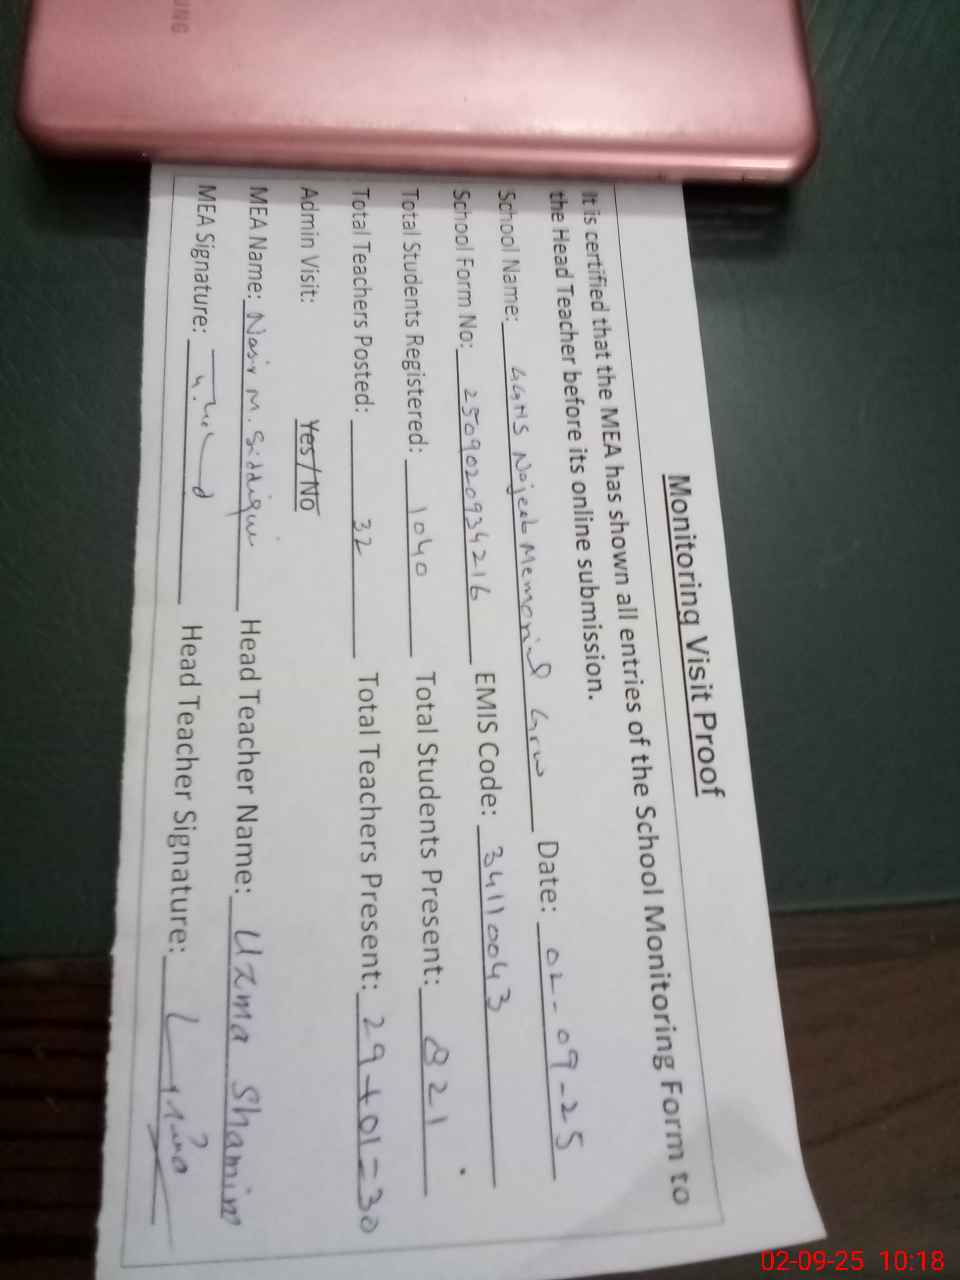 Monitoring Visit Proof
It is certified that the MEA has shown all entries of the School Monitoring Form to
the Head Teacher before its online submission.
School Name: GGHS Najeeb Memorial Grw Date: 02-09-25
School Form No: 2509020934216 EMIS Code: 34110043
Total Students Registered: 1040 Total Students Present: 821
Total Teachers Posted: 32 Total Teachers Present: 29+01=30
Admin Visit: Yes/No
MEA Name: Nasir M. Siddiqui Head Teacher Name: Uzma Shamim
MEA Signature: Head Teacher Signature:
UNG
02-09-25 10:18